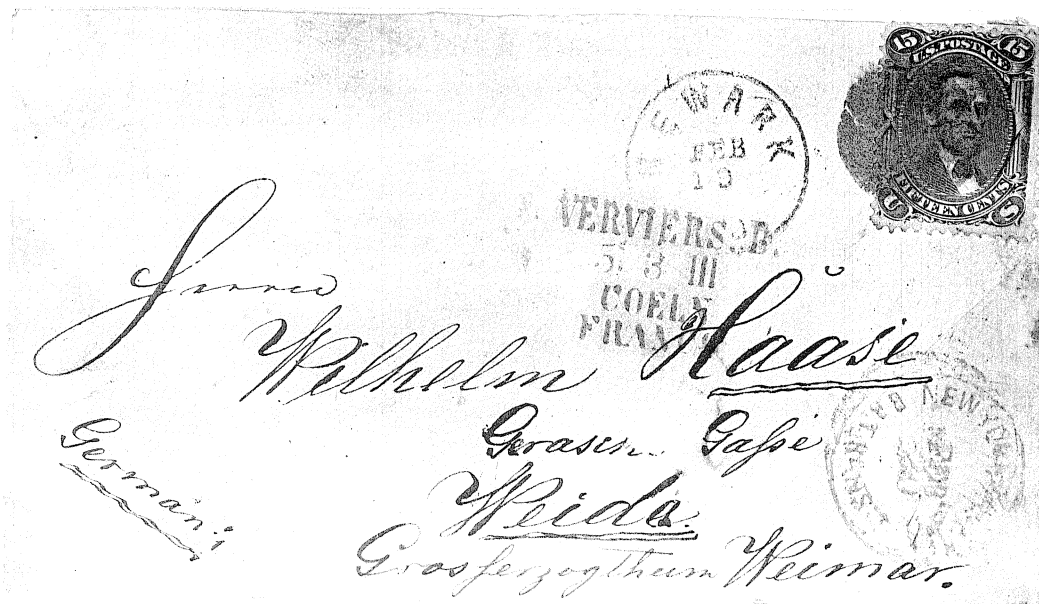 15 U.S. POSTAGE 15
U FIFTEEN CENTS S
NEWARK
FEB
19
VERVIERS B.
5 3 III
COELN
FRAN
Herrn
Wilhelm Haase
Gasse
Weida
Grosherzogthum Weimar.
Germany
NEW YORK